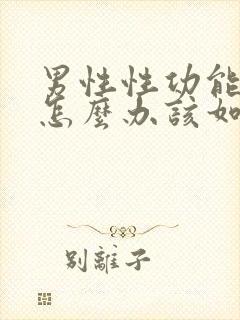 男性性功能
怎麼办該如
別離子